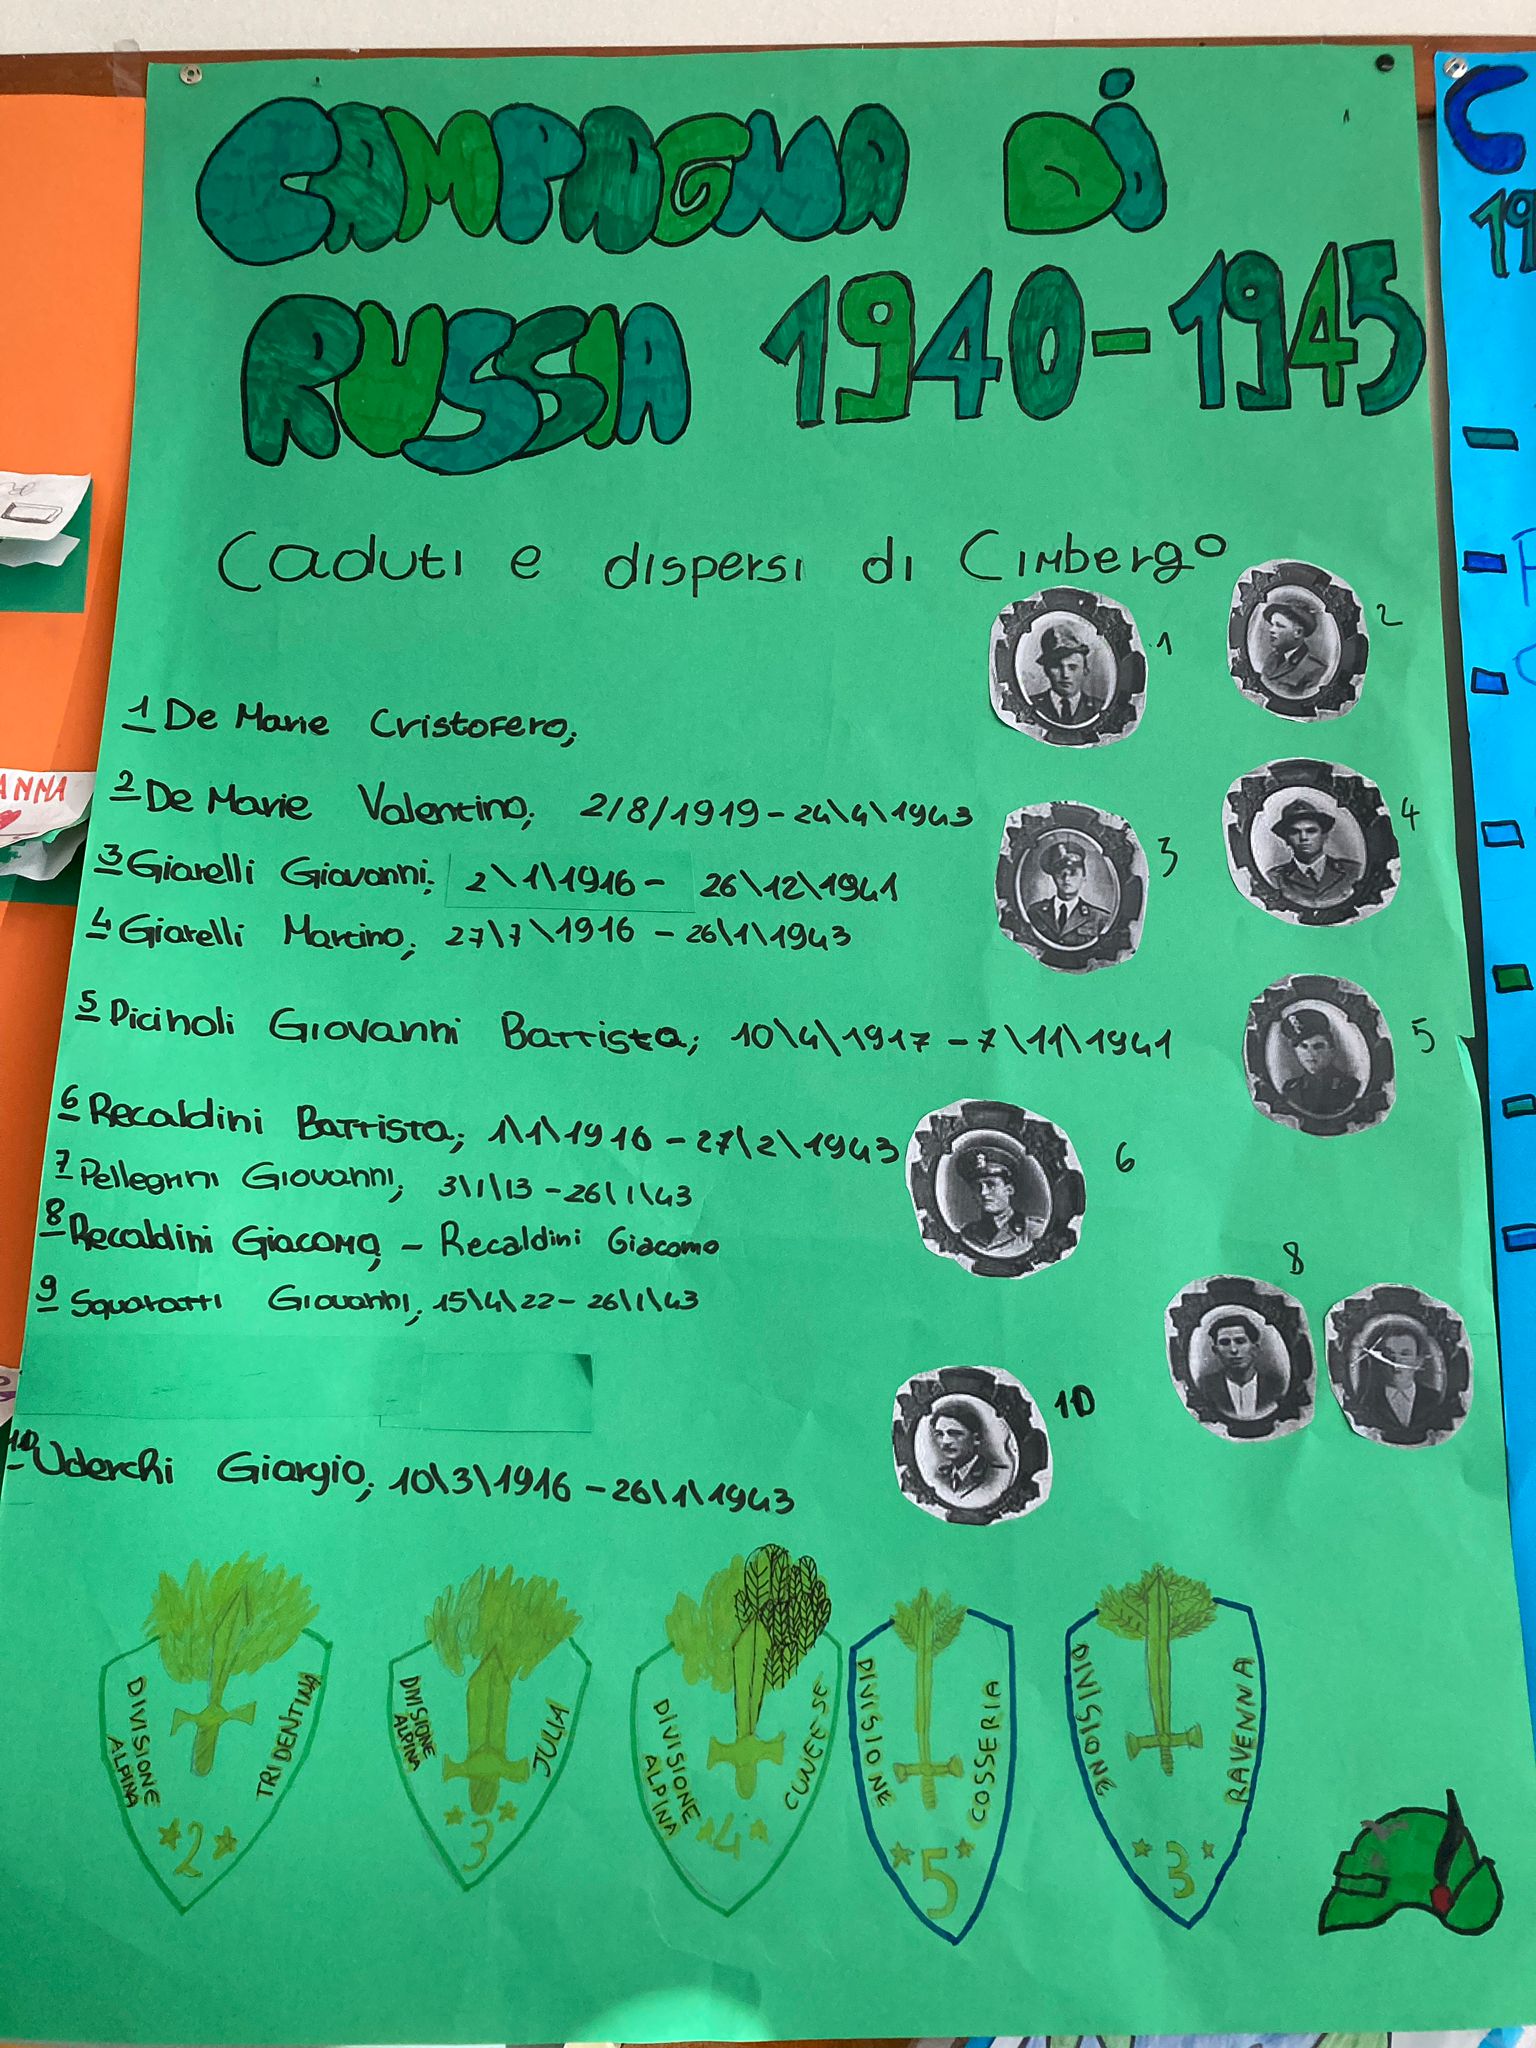 CAMPAGNA Di
RUSSIA 1940-1945
Caduti e dispersi di Cimbergo
1 De Marie Cristofero;
2 De Marie Valentino; 2/8/1919 - 24\4\1943
3 Giarelli Giovanni; 2\1\1916 - 26\12\1941
4 Giarelli Martino; 27\7\1916 - 26\1\1943
5 Picinoli Giovanni Battista; 10\4\1917 - 7\11\1941
6 Recaldini Battista; 1\1\1916 - 27\2\1943
7 Pellegrini Giovanni; 3\1\13 - 26\1\43
8 Recaldini Giacomo, - Recaldini Giacomo
9 Squaratti Giovanni, 15\4\22 - 26\1\43
10 Uderchi Giorgio; 10\3\1916 - 26\1\1943
1
2
3
4
5
6
8
10
DIVISIONE ALPINA TRIDENTINA
2
DIVISIONE ALPINA JULIA
3
DIVISIONE ALPINA CUNEESE
4
DIVISIONE COSSERIA
5
DIVISIONE RAVENNA
3
ANNA
C
19